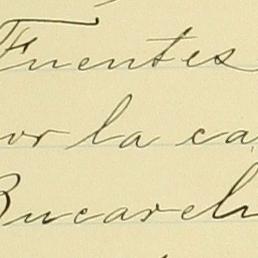 Fuentes
or la ca
Bucareli